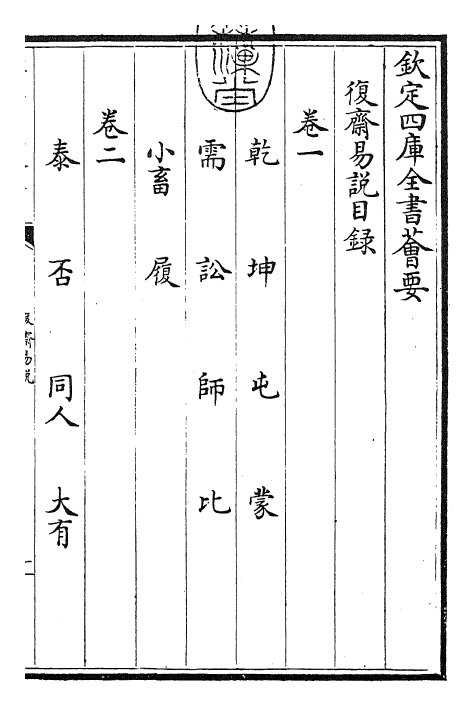 欽定四庫全書薈要
復齋易說目録
卷一
乾 坤 屯 蒙
需 訟 師 比
小畜 履
卷二
泰 否 同人 大有
復齋易説